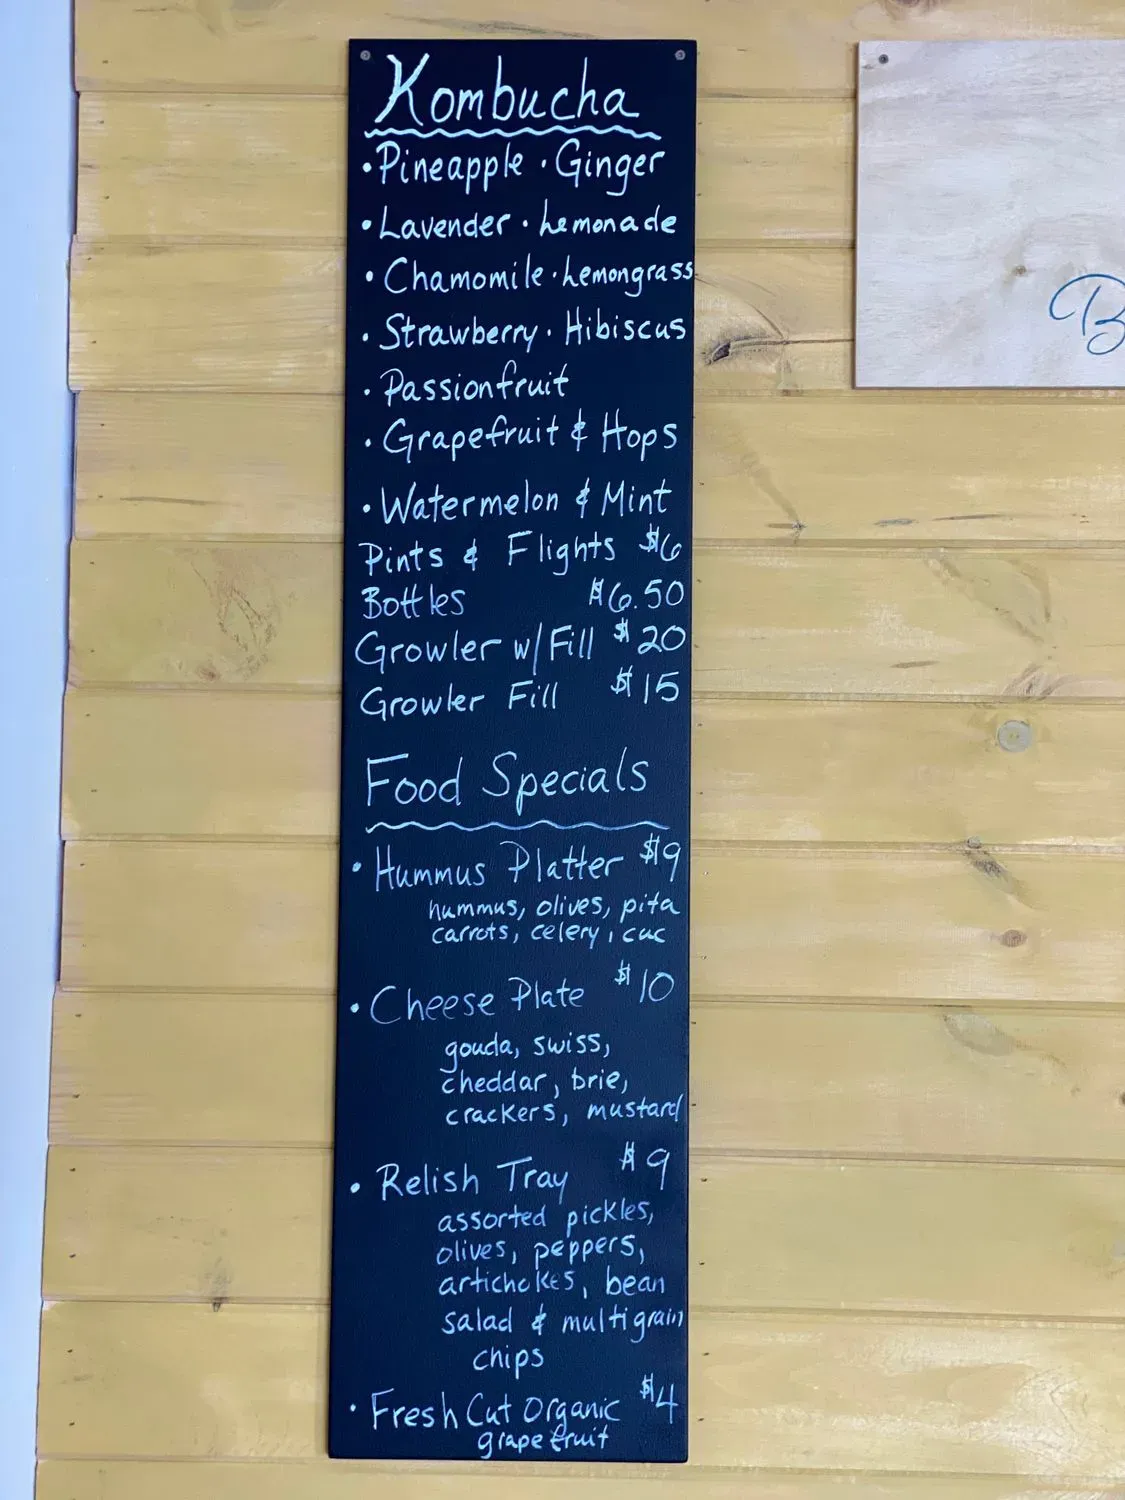 Kombucha
• Pineapple • Ginger
• Lavender • Lemonade
• Chamomile • Lemongrass
• Strawberry • Hibiscus
• Passionfruit
• Grapefruit & Hops
• Watermelon & Mint
Pints & Flights $6
Bottles $6.50
Growler w/Fill $20
Growler Fill $15
Food Specials
• Hummus Platter $9
hummus, olives, pita
carrots, celery, cuc
• Cheese Plate $10
gouda, swiss,
cheddar, brie,
crackers, mustard
• Relish Tray $9
assorted pickles,
olives, peppers,
artichokes, bean
salad & multigrain
chips
• Fresh Cut Organic $4
grapefruit